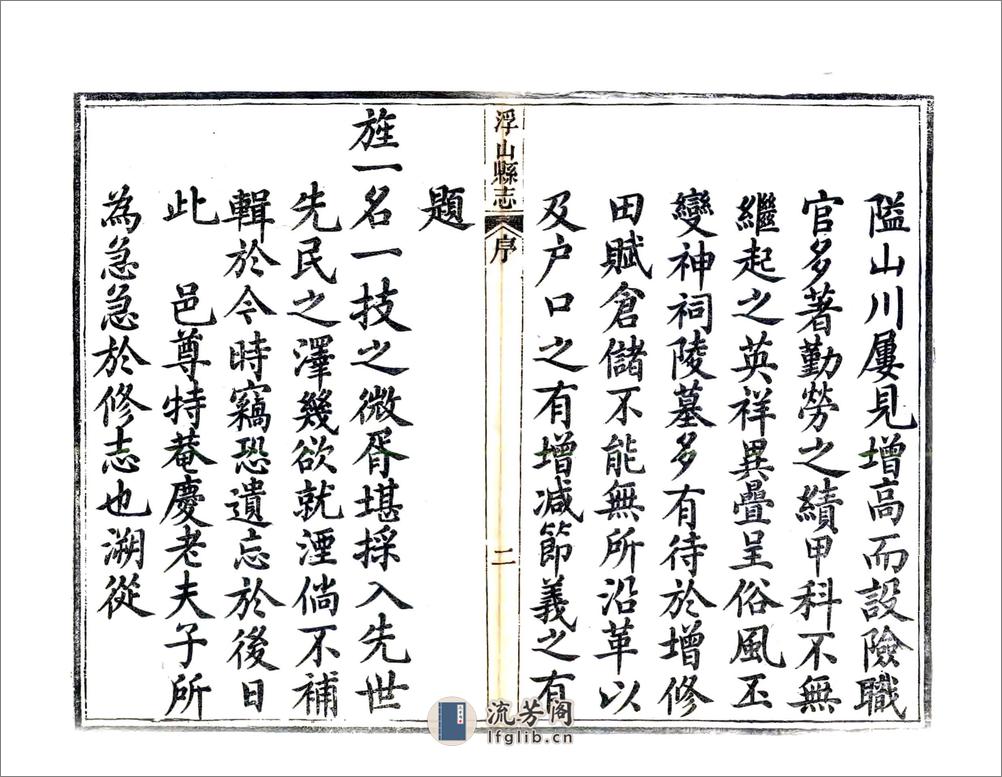 隘山川屢見增高而設險職
官多著勤勞之績甲科不無
繼起之英祥異疊呈俗風丕
變神祠陵墓多有待於增修
田賦倉儲不能無所沿革以
及户口之有增减節義之有
浮山縣志
序
二
題
旌一名一技之微胥堪採入先世
先民之澤幾欲就湮倘不補
輯於今時竊恐遺忘於後日
此 邑尊特菴慶老夫子所
為急急於修志也溯從
流芳阁
lfglib.cn